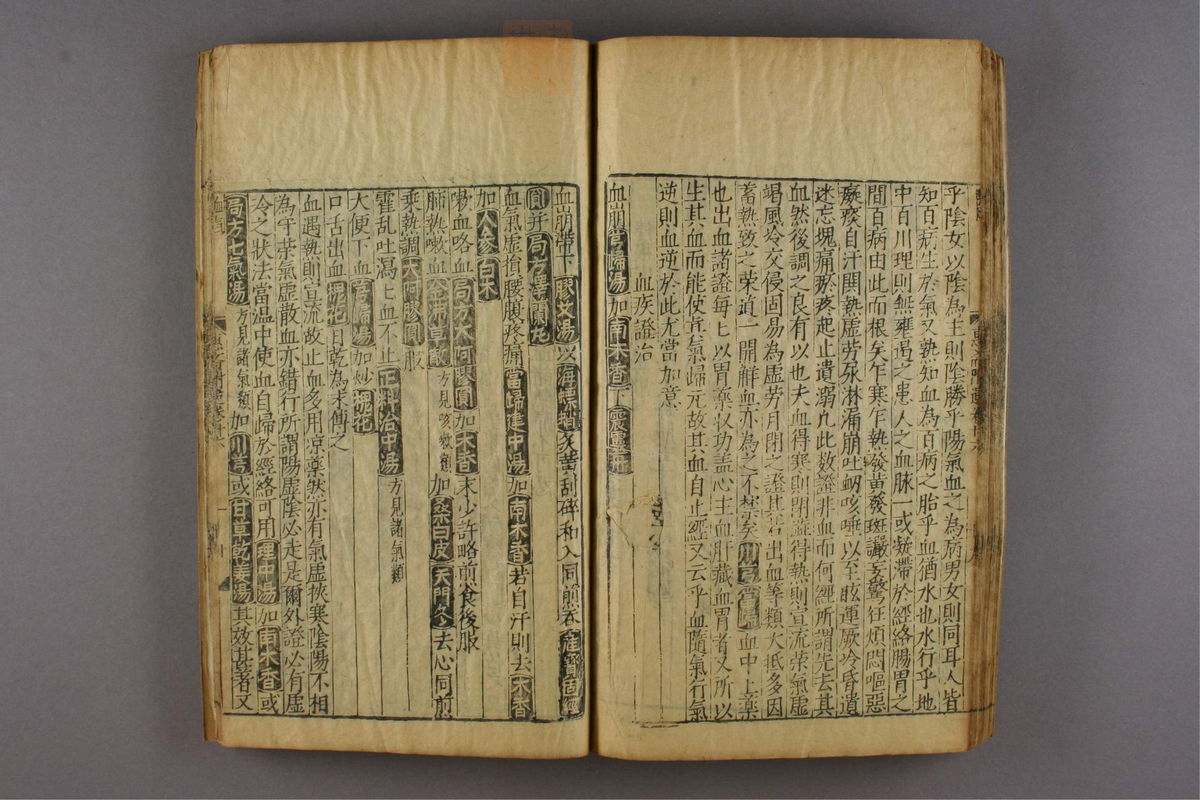 乎陰女以陰為主則陰勝乎陽氣血之為病男女則同耳人皆
知百病生於氣又孰知血為百病之胎乎血猶水也水行乎地
中百川理則無壅遏之患人之血脉一或凝滯於經絡腸胃之
間百病由此而根矣乍寒乍熱發黃發斑譫妄驚狂煩悶嘔惡
痰自汗閧熱虛勞尿淋漏崩吐衂咳唾以至眩運厥冷昏遺
迷忘塊痛瘀疼起止遺溺凢此数證非血而何經所謂先去其
血然後調之良有以也夫血得寒則閉澁得熱則宣流荣氣虛
竭風冷交侵固易為虛劳月閉之證其若出血等類大抵多因
蓄熱致之荣道一開鮮血亦為之不禁矣川芎當歸血中上藥
也出血諸證每每以胃藥収功盖心主血肝藏血胃者又所以
生其血而能使氣歸元故其血自止經又云乎血隨氣行氣
逆則血逆於此尤當加意
血疾證治
血崩當歸湯加南木香下震靈丹
血崩帶下膠艾湯以海螵蛸多黃刮碎和入同煎吞産寶固經
圓并局方芎
血氣虛損腰腹疼痛當歸建中湯加南木香若自汗則去木香
加人參白木
嗽血咯血局方大阿膠圓加木香末少許略煎食後服
肺熱嗽血金沸草散方見咳嗽類加桑白皮天門冬去心同煎
乗熱調大阿膠圓服
霍乱吐瀉上血不止正料治中湯方見諸氣類
大便下血當歸湯加炒槐花
口舌出血槐花日乾為末傅之
血遇熱則宣流故止血多用凉藥然亦有氣虛挾寒陰陽不相
為守荣氣虛散血亦錯行所謂陽虛陰必走是爾外證必有虛
冷之狀法當温中使血自歸於經絡可用理中湯加南木香或
局方七氣湯方見諸氣類加川芎或甘草乾姜湯其效甚著又